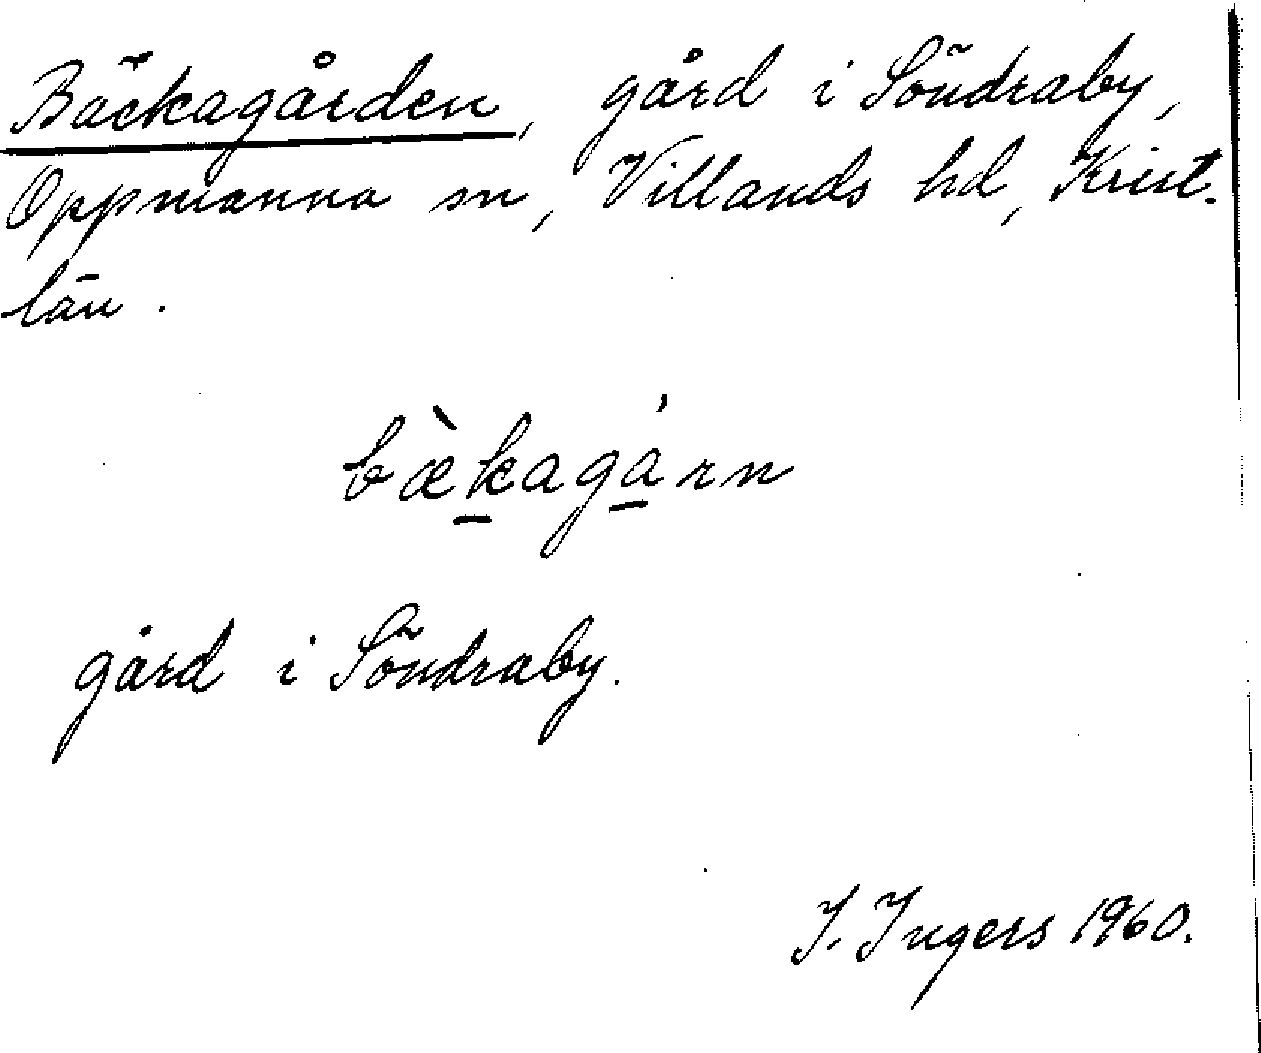 Bäckagården, gård i Söndraby,
Oppmanna sn, Villands hd, Krist.
län.
bæ̀kagárn
gård i Söndraby.
I. Ingers 1960.